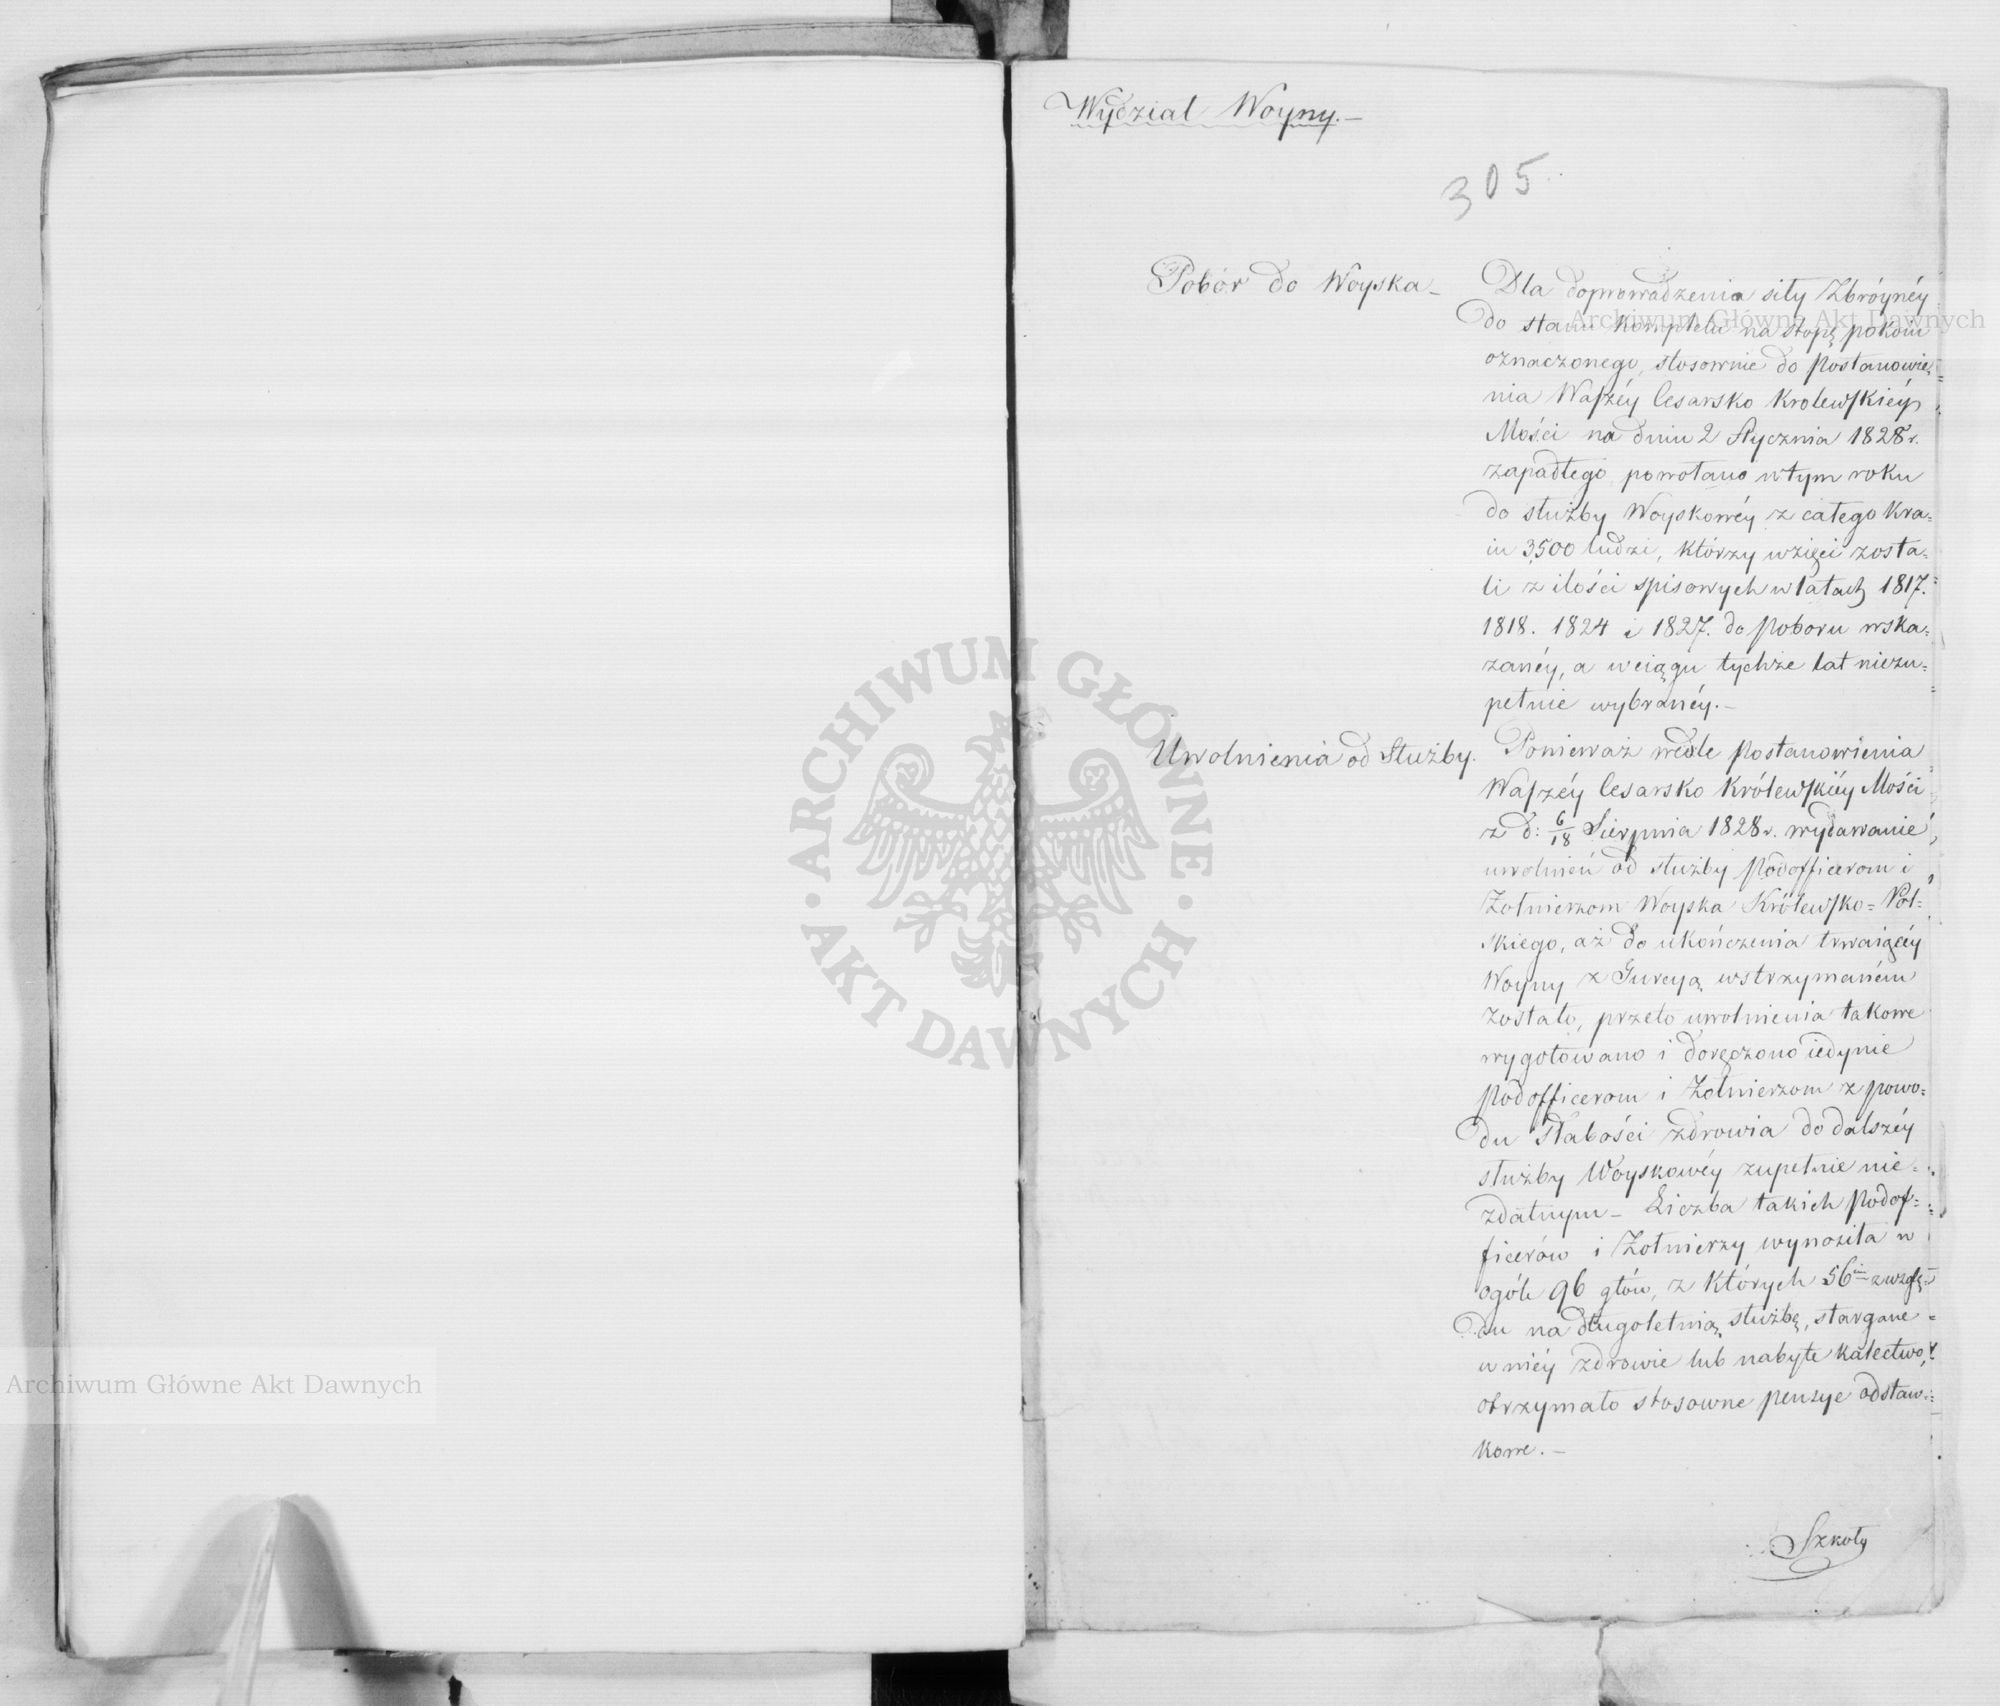 Wydział Woyny.—
305
Pobór do Woyska—
Dla doprowadzenia siły Zbróynéy
do stanu kompletu na stopę pokoiu
oznaczonego, stosownie do Postanowie=
nia Waszéy Cesarsko Krolewskiéy
Mości na dniu 2 Stycznia 1828 r.
zapadłego, powołano w tym roku
do służby Woyskowéy z całego Kra=
iu 3,500 ludzi, którzy wzięci zosta=
li z ilości spisowych w latach 1817.
1818. 1824 i 1827. do poboru wska=
zanéy, a w ciągu tychże lat niezu=
pełnie wybranéy.—
Uwolnienia od Służby.
Ponieważ wedle Postanowienia
Waszéy Cesarsko Królewskiéy Mości
z d: 6/18 Sierpnia 1828 r. wydawanie
uwolnień od służby Podofficerom i
Żołnierzom Woyska Królewsko=Pol=
skiego, aż do ukończenia trwaiącéy
Woyny z Turcyą wstrzymaném
zostało, przeto uwolnienia takowe
wygotowano i doręczono iedynie
Podofficerom i Żołnierzom z powo=
du słabości zdrowia do dalszéy
służby Woyskowéy zupełnie nie=
zdatnym— Liczba takich Podof=
ficerów i Żołnierzy wynosiła w
ogóle 96 głów, z których 56iu z wzglę=
du na długoletnią służbę, stargane
w niéy zdrowie lub nabyte kalectwo,
otrzymało stosowne pensye odstaw=
kowe.—
Szkoły
Archiwum Główne Akt Dawnych
Archiwum Główne Akt Dawnych
ARCHIWUM GŁÓWNE
AKT DAWNYCH